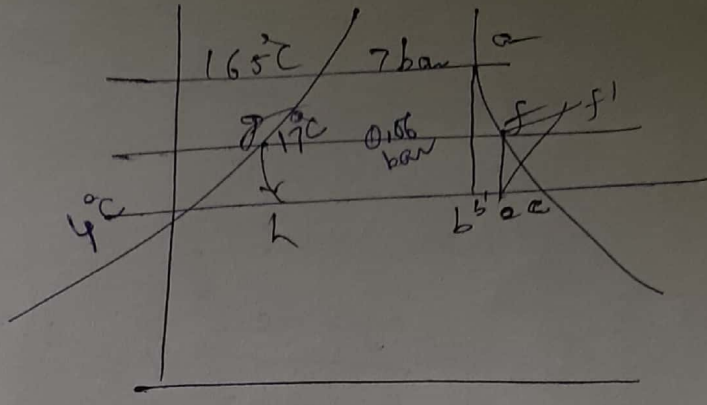 165°C 7 bar a
f f'
g 17°C 0.06
bar
4°C
h b b' e c